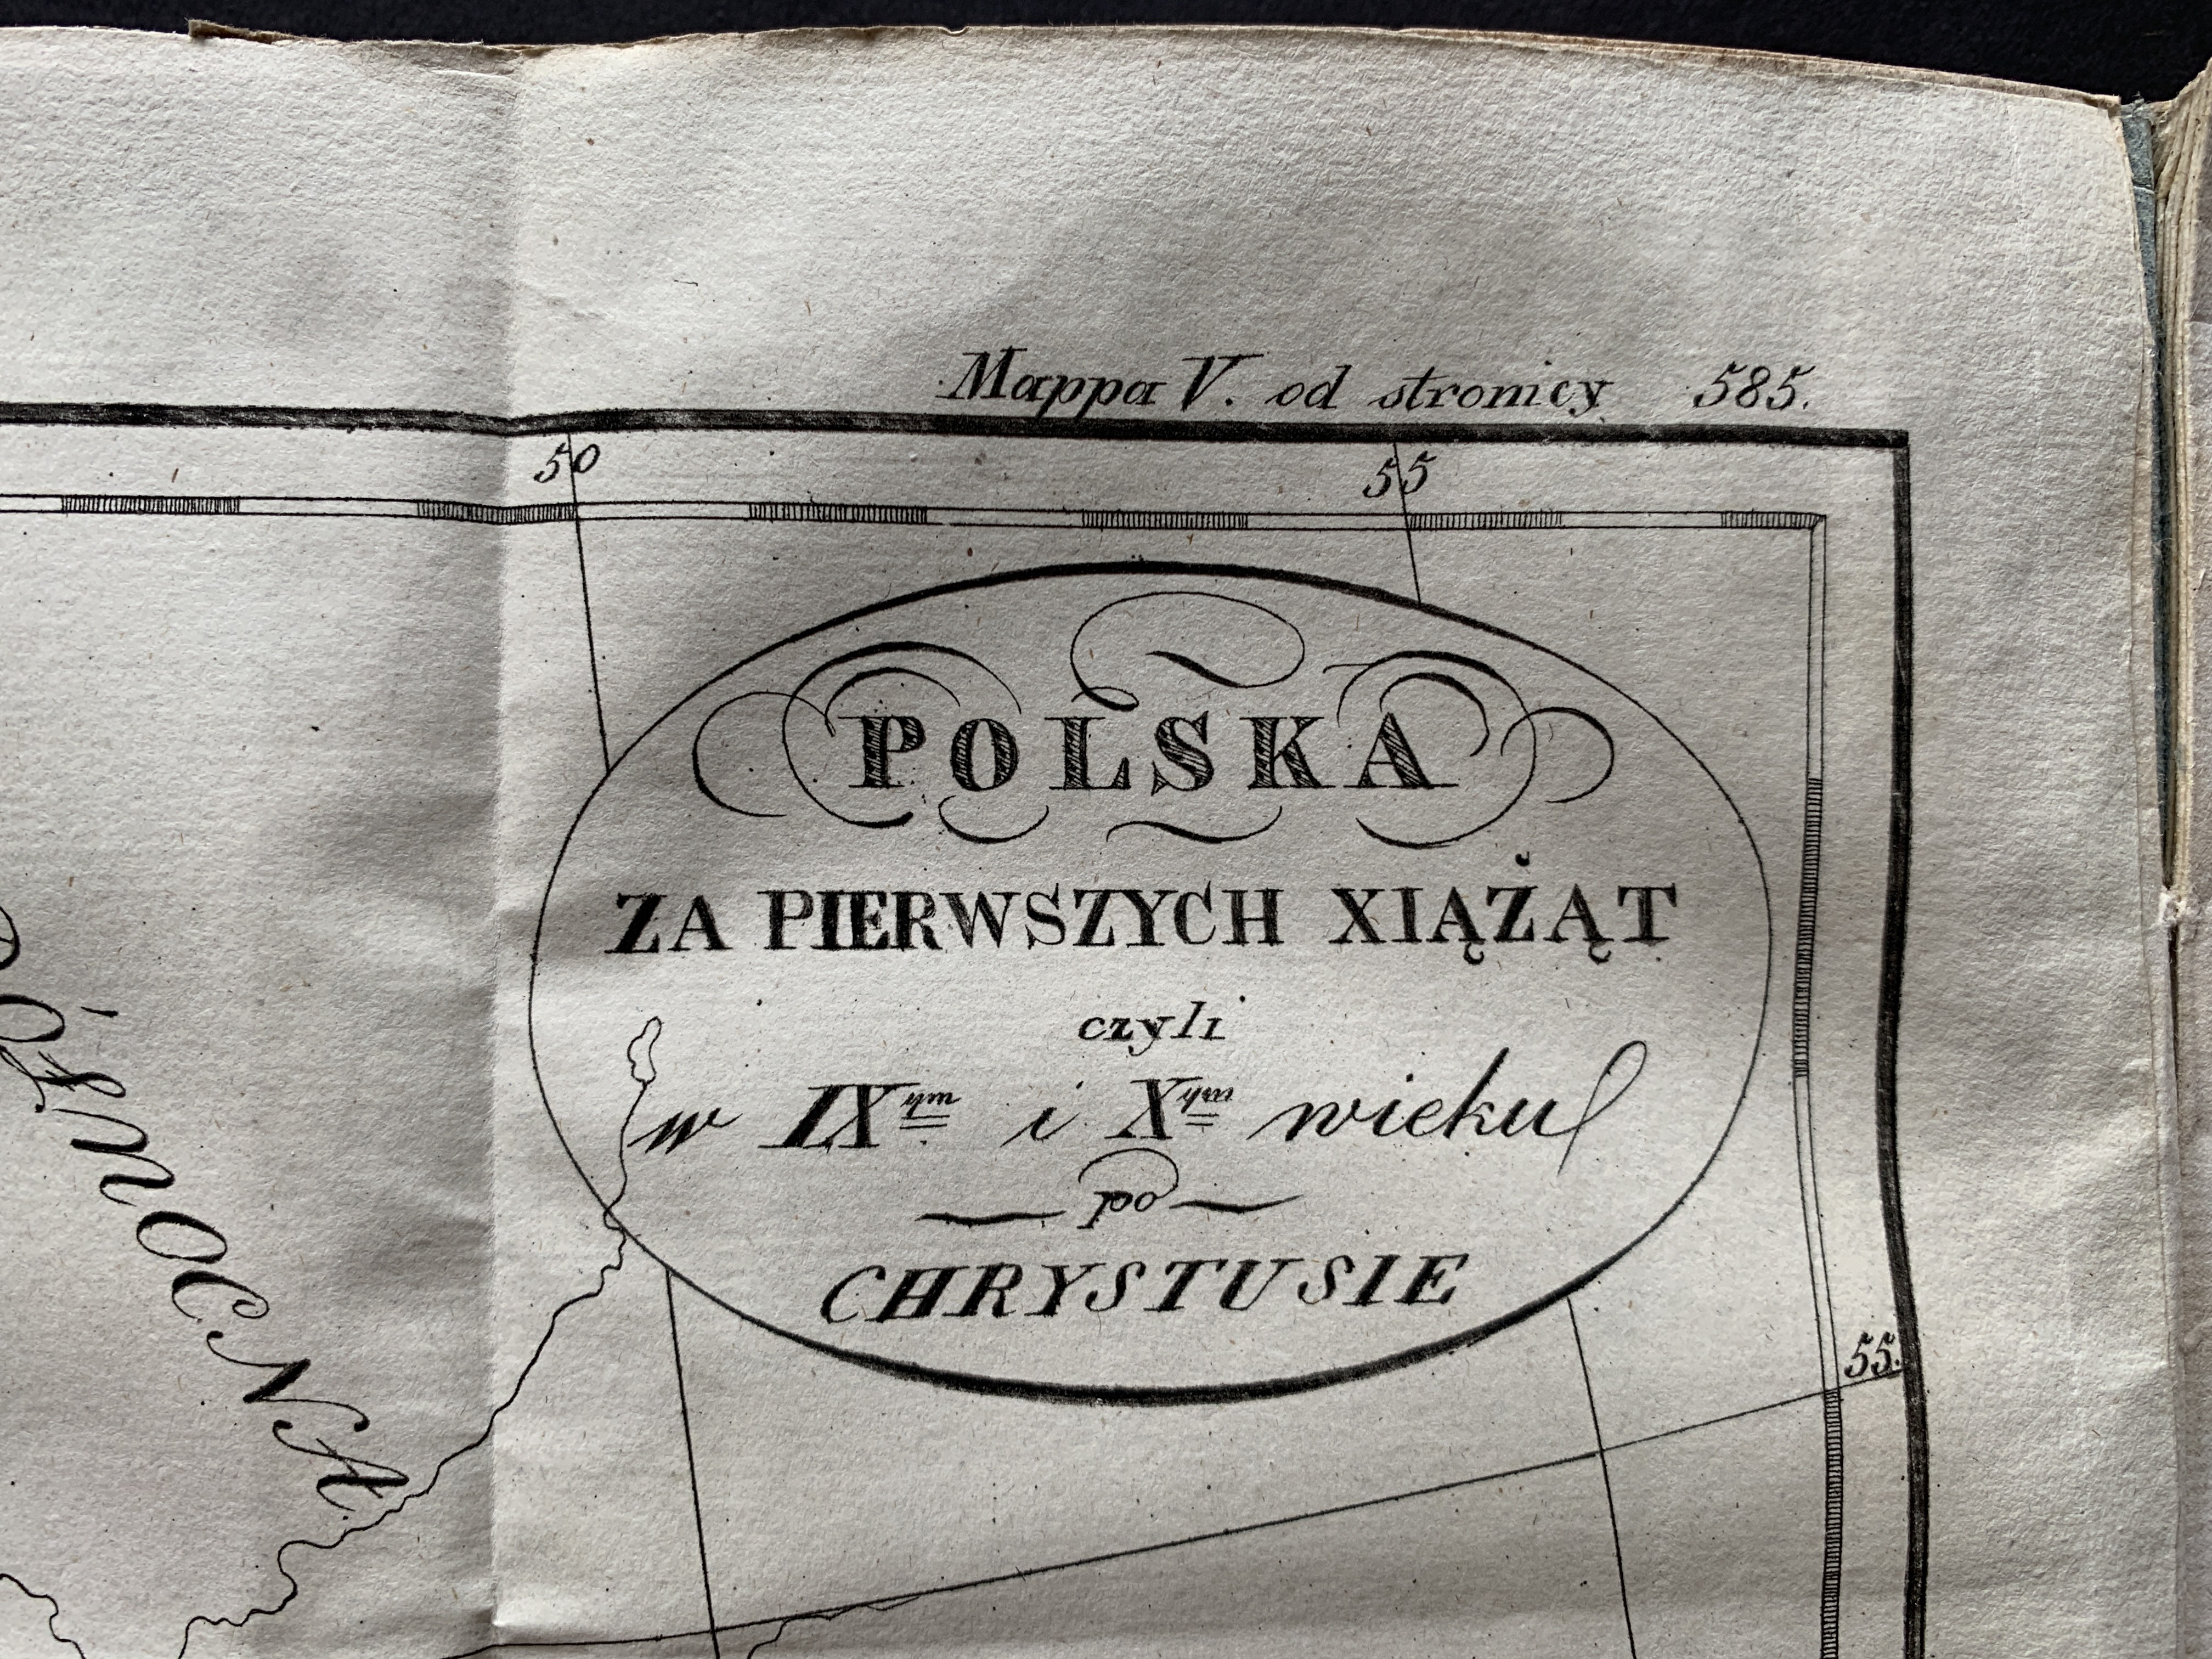 Mappa V. od stronicy 585.
50
55
POLSKA
ZA PIERWSZYCH XIĄŻĄT
czyli
w IXym i Xym wieku
po
CHRYSTUSIE
55.
PÓŁNOCNA